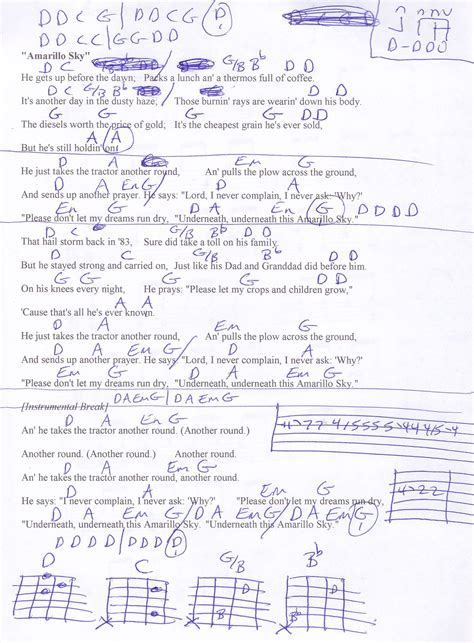 DDCG / DDCG / D
DDCC | GGDD
D - D D D
"Amarillo Sky"
D C G/B Bb
He gets up before the dayn; Packs a lunch an' a thermos full of coffee.
D C G/B Bb D D
It's another day in the dusty haze; Those burnin' rays are wearin' down his body.
G G G D D
The diesels worth the price of gold; It's the cheapest grain he's ever sold,
A A
But he's still holdin' on.
D A Em G
He just takes the tractor another round, An' pulls the plow across the ground,
D A Em G D A
And sends up another prayer. He says: "Lord, I never complain, I never ask: 'Why?'
Em G D A Em G D D D D
"Please don't let my dreams run dry, "Underneath, underneath this Amarillo Sky."
D C G/B Bb D D
That hail storm back in '83, Sure did take a toll on his family.
D C G/B Bb D D
But he stayed strong and carried on, Just like his Dad and Granddad did before him.
G G G G D D
On his knees every night, He prays: "Please let my crops and children grow,"
A A
'Cause that's all he's ever known.
D A Em G
He just takes the tractor another round, An' pulls the plow across the ground,
D A Em G D A
And sends up another prayer. He says: "Lord, I never complain, I never ask: 'Why?'
Em G D A Em G
"Please don't let my dreams run dry, "Underneath, underneath this Amarillo Sky."
DAEmG | DAEmG
[Instrumental Break]
D A Em G
An' he takes the tractor another round. (Another round.)
Another round. (Another round.) Another round.
D A Em G
An' he takes the tractor another round, another round,
D A Em G
He says: "I never complain, I never ask: 'Why?' "Please don't let my dreams run dry,
D A Em G / D A Em G / D A Em G
"Underneath, underneath this Amarillo Sky. "Underneath this Amarillo Sky."
D D D D / D D D D
D C G/B Bb